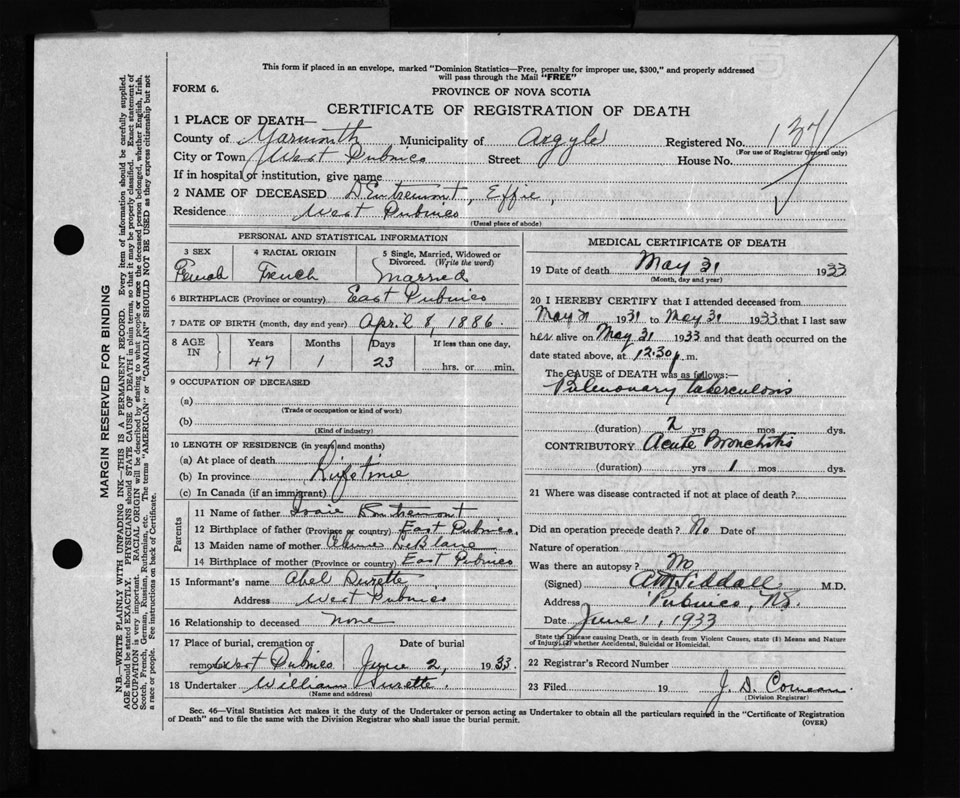 This form if placed in an envelope, marked "Dominion Statistics—Free, penalty for improper use, $300," and properly addressed
will pass through the Mail "FREE"
FORM 6.
PROVINCE OF NOVA SCOTIA
CERTIFICATE OF REGISTRATION OF DEATH
1 PLACE OF DEATH—
County of Yarmouth Municipality of Argyle Registered No. 137
(For use of Registrar General only)
City or Town West Pubnico Street House No.
If in hospital or institution, give name
2 NAME OF DECEASED D'Entremont, Effie,
Residence West Pubnico
(Usual place of abode)
PERSONAL AND STATISTICAL INFORMATION
3 SEX 4 RACIAL ORIGIN 5 Single, Married, Widowed or
Divorced. (Write the word)
Female French Married
6 BIRTHPLACE (Province or country) East Pubnico
7 DATE OF BIRTH (month, day and year) April 8, 1886.
8 AGE IN Years Months Days If less than one day.
47 1 23 hrs. or min.
9 OCCUPATION OF DECEASED
(a)
(Trade or occupation or kind of work)
(b)
(Kind of industry)
10 LENGTH OF RESIDENCE (in years and months)
(a) At place of death
(b) In province Lifetime
(c) In Canada (if an immigrant)
Parents
11 Name of father
12 Birthplace of father (Province or country) East Pubnico.
13 Maiden name of mother LeBlanc
14 Birthplace of mother (Province or country) East Pubnico
15 Informant's name Abel Surette
Address West Pubnico
16 Relationship to deceased none
17 Place of burial, cremation or Date of burial
removal West Pubnico June 2, 1933.
18 Undertaker William Surette.
(Name and address)
MEDICAL CERTIFICATE OF DEATH
19 Date of death May 31 1933
(Month, day and year)
20 I HEREBY CERTIFY that I attended deceased from
May 1931 to May 31 1933 that I last saw
her alive on May 31 1933 and that death occurred on the
date stated above, at 12.30 p.m.
The CAUSE OF DEATH was as follows:—
Pulmonary tuberculosis
(duration) 2 yrs mos dys.
CONTRIBUTORY Acute Bronchitis
(duration) yrs 1 mos dys.
21 Where was disease contracted if not at place of death?
Did an operation precede death? No Date of
Nature of operation
Was there an autopsy? No
(Signed) Siddall M.D.
Address Pubnico, N.S.
Date June 1, 1933
State the Disease causing Death, or in death from Violent Causes, state (1) Means and Nature
of Injury, (2) whether Accidental, Suicidal or Homicidal.
22 Registrar's Record Number
23 Filed 19 J. D. Comeau
(Division Registrar)
Sec. 46—Vital Statistics Act makes it the duty of the Undertaker or person acting as Undertaker to obtain all the particulars required in the "Certificate of Registration
of Death" and to file the same with the Division Registrar who shall issue the burial permit.
(OVER)
MARGIN RESERVED FOR BINDING
N.B.—WRITE PLAINLY WITH UNFADING INK—THIS IS A PERMANENT RECORD. Every item of information should be carefully supplied.
AGE should be stated EXACTLY. PHYSICIANS should STATE CAUSE OF DEATH in plain terms, so that it may be properly classified. Exact statement of
OCCUPATION is very important. RACIAL ORIGIN will be described by stating to what people or race the deceased person belonged, whether English, Irish,
Scotch, French, German, Russian, Ruthenian, etc. The terms "AMERICAN" or "CANADIAN" SHOULD NOT BE USED as they express citizenship but not
a race or people. See instructions on back of Certificate.